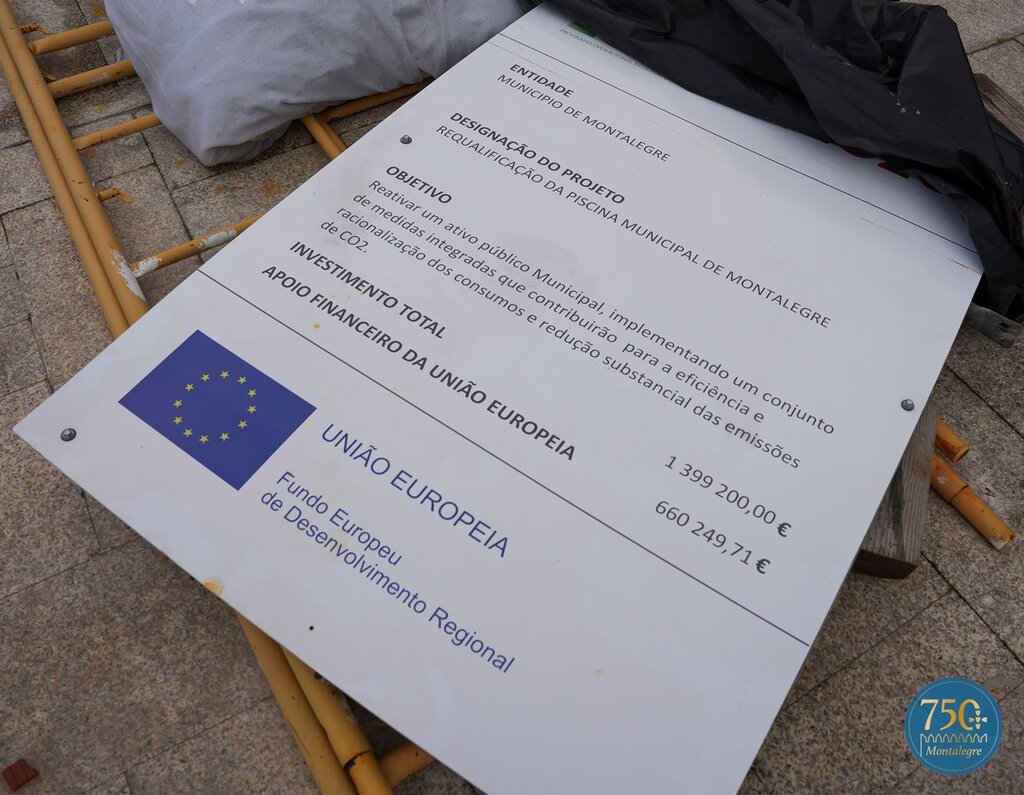 PROGRAMA OPERACIONAL
ENTIDADE
MUNICIPIO DE MONTALEGRE
DESIGNAÇÃO DO PROJETO
REQUALIFICAÇÃO DA PISCINA MUNICIPAL DE MONTALEGRE
OBJETIVO
Reativar um ativo público Municipal, implementando um conjunto
de medidas integradas que contribuirão para a eficiência e
racionalização dos consumos e redução substancial das emissões
de CO2.
INVESTIMENTO TOTAL 1 399 200,00 €
APOIO FINANCEIRO DA UNIÃO EUROPEIA 660 249,71 €
UNIÃO EUROPEIA
Fundo Europeu
de Desenvolvimento Regional
750
Montalegre